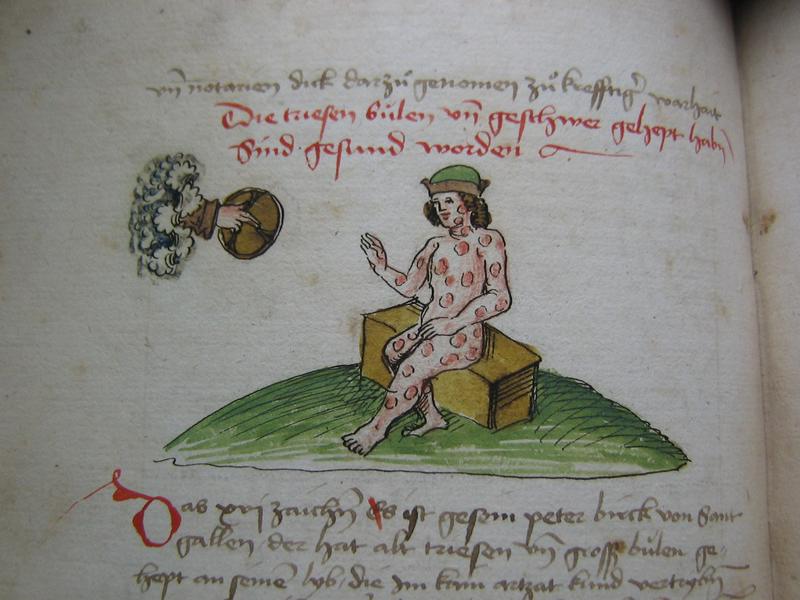 vn̄ notarien dick darzů genomen zů krefftigr̄ warhait
Die triesen bülen vn̄ geschwer gehept habn̄
Sind gesund worden
Das xvj zaichn̄ Es ist gesein peter birck von Sant
gallen der hat alt triesen vn̄ gross bülen ge-
hept an seinē lyb die Im kain artzat kund vertrybn̄